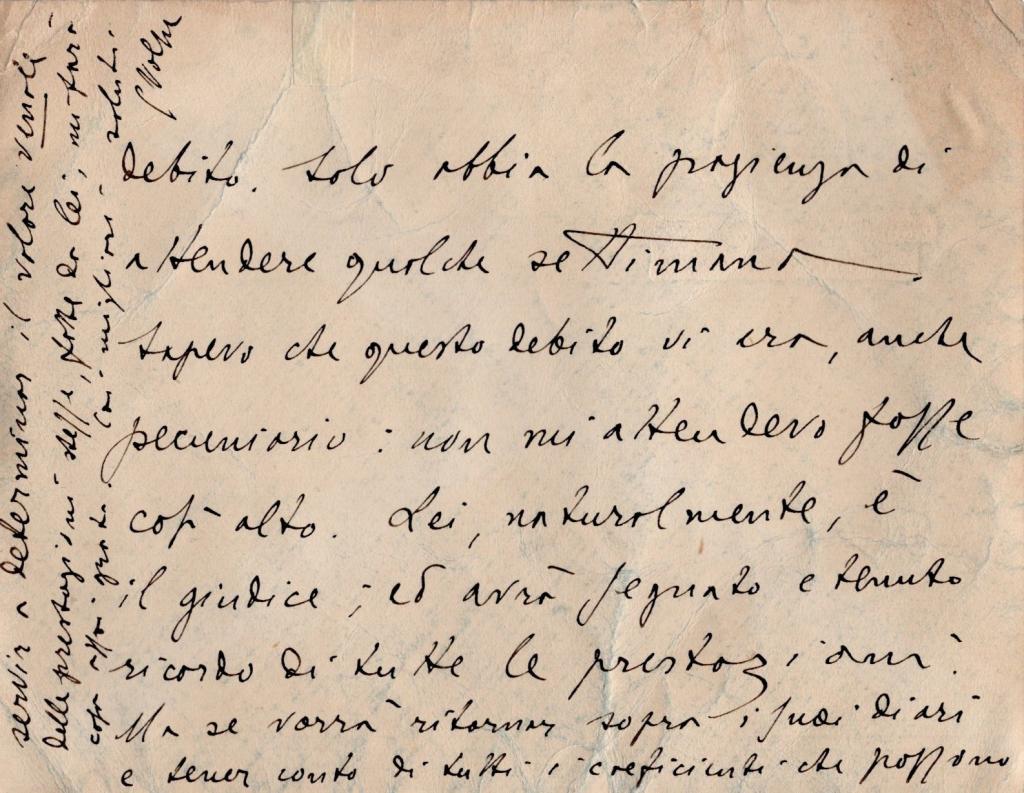 debito. Solo abbia la pazienza di
attendere qualche settimana.
Sapevo che questo debito vi era, anche
pecuniario: non mi attendevo fosse
così alto. Lei, naturalmente, è
il giudice; ed avrà segnato e tenuto
ricordo di tutte le prestazioni.
Ma se vorrà ritornar sopra i suoi diari
e tener conto di tutti i coeficienti che possono
servir a determinar il valore venale
delle prestazioni stesse, fatte da lei, mi farà
cosa assai grata. Coi migliori saluti.
GVolpe